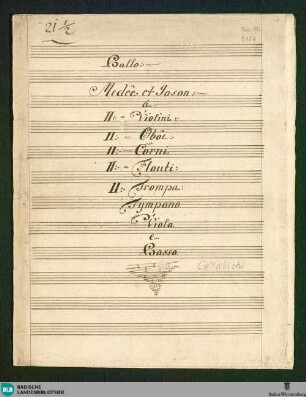 21 1/2
Ballo:
Medée et Jason:
a
II: Violini:
II: Oboe
II: Corni
II: Flauti:
II: Trompa:
Tympano
Viola
e
Basso
Cannabich
BLB
BADISCHE
LANDESBIBLIOTHEK
Baden-Württemberg